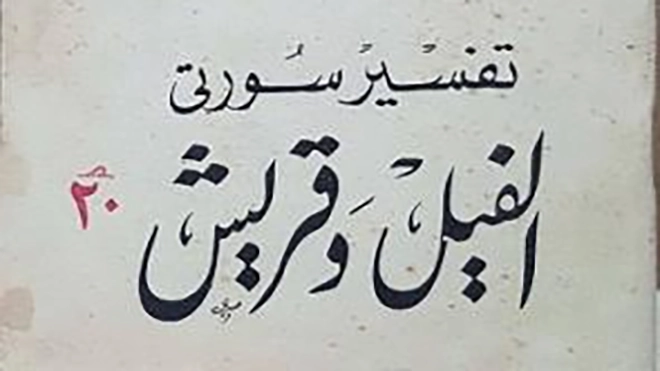 تفسير سورتي
الفيل وقريش
٢٠